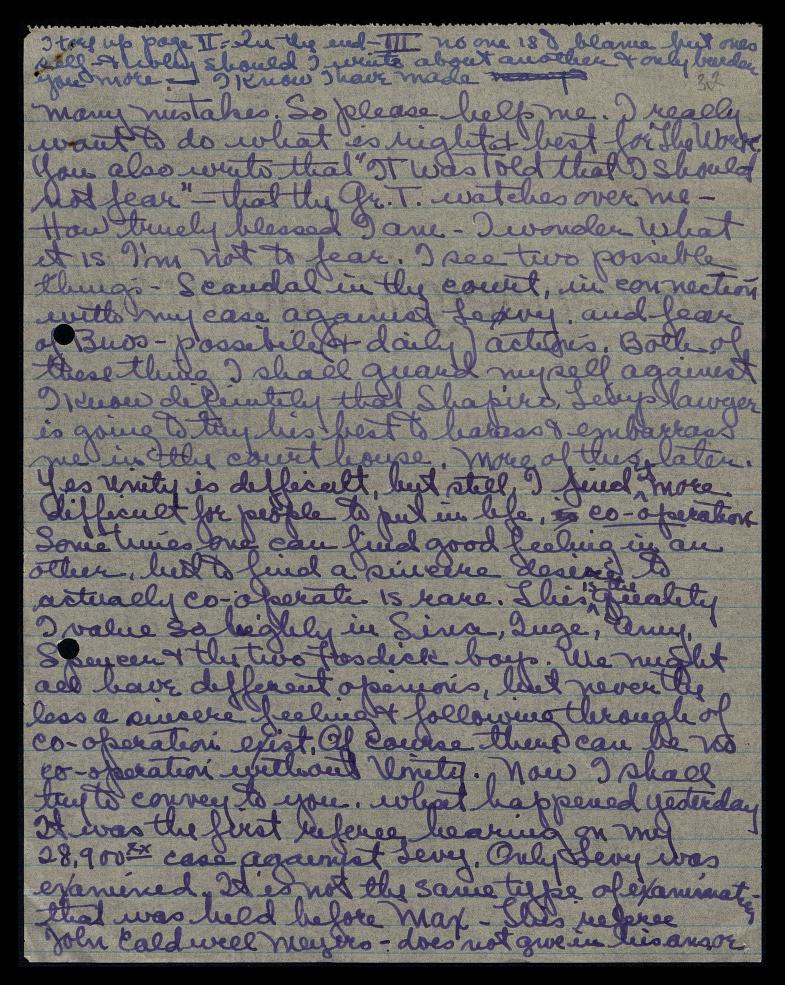 I tore up page II = In the end - III no one is to blame but ones
self - & why should I write about another & only burden
you more - I know I have made
32
many mistakes. So please help me. I really
want to do what is right & best for "The Work.
You also wrote that "IT was Told that I should
not fear" - that the Gr. T. watches over me -
How truely blessed I am - I wonder what
it is I'm not to fear. I see two possible
things - Scandal in the court, in connection
with my case against Levy. and fear
of Buos - possibile & daily actions. Both of
these thing I shall guard myself against
I know difinitely that Shapiro, Levys lawyer
is going to try his best to harass & embarrass
me in the court house. More of this later.
Yes Unity is difficult, but still, I find it more
difficult for people to put in life, co-operation
Some times one can find good feeling in an
other, but to find a sincere desire to
actually co-operate is rare. This is the quality
I value so highly in Sina, Inge, Amy,
Spencer & the two Fosdick boys. We might
all have different opinions, but never the
less a sincere feeling & following through of
co-operation exist. Of course there can be no
co-operation without Unity. Now I shall
try to convey to you. what happened yesterday
It was the first referee hearing on my
28,900 xx case against Levy. Only Levy was
examined. It is not the same type of examinati-
that was held before Max - This referee
John Caldwell Meyers - does not give in his answ